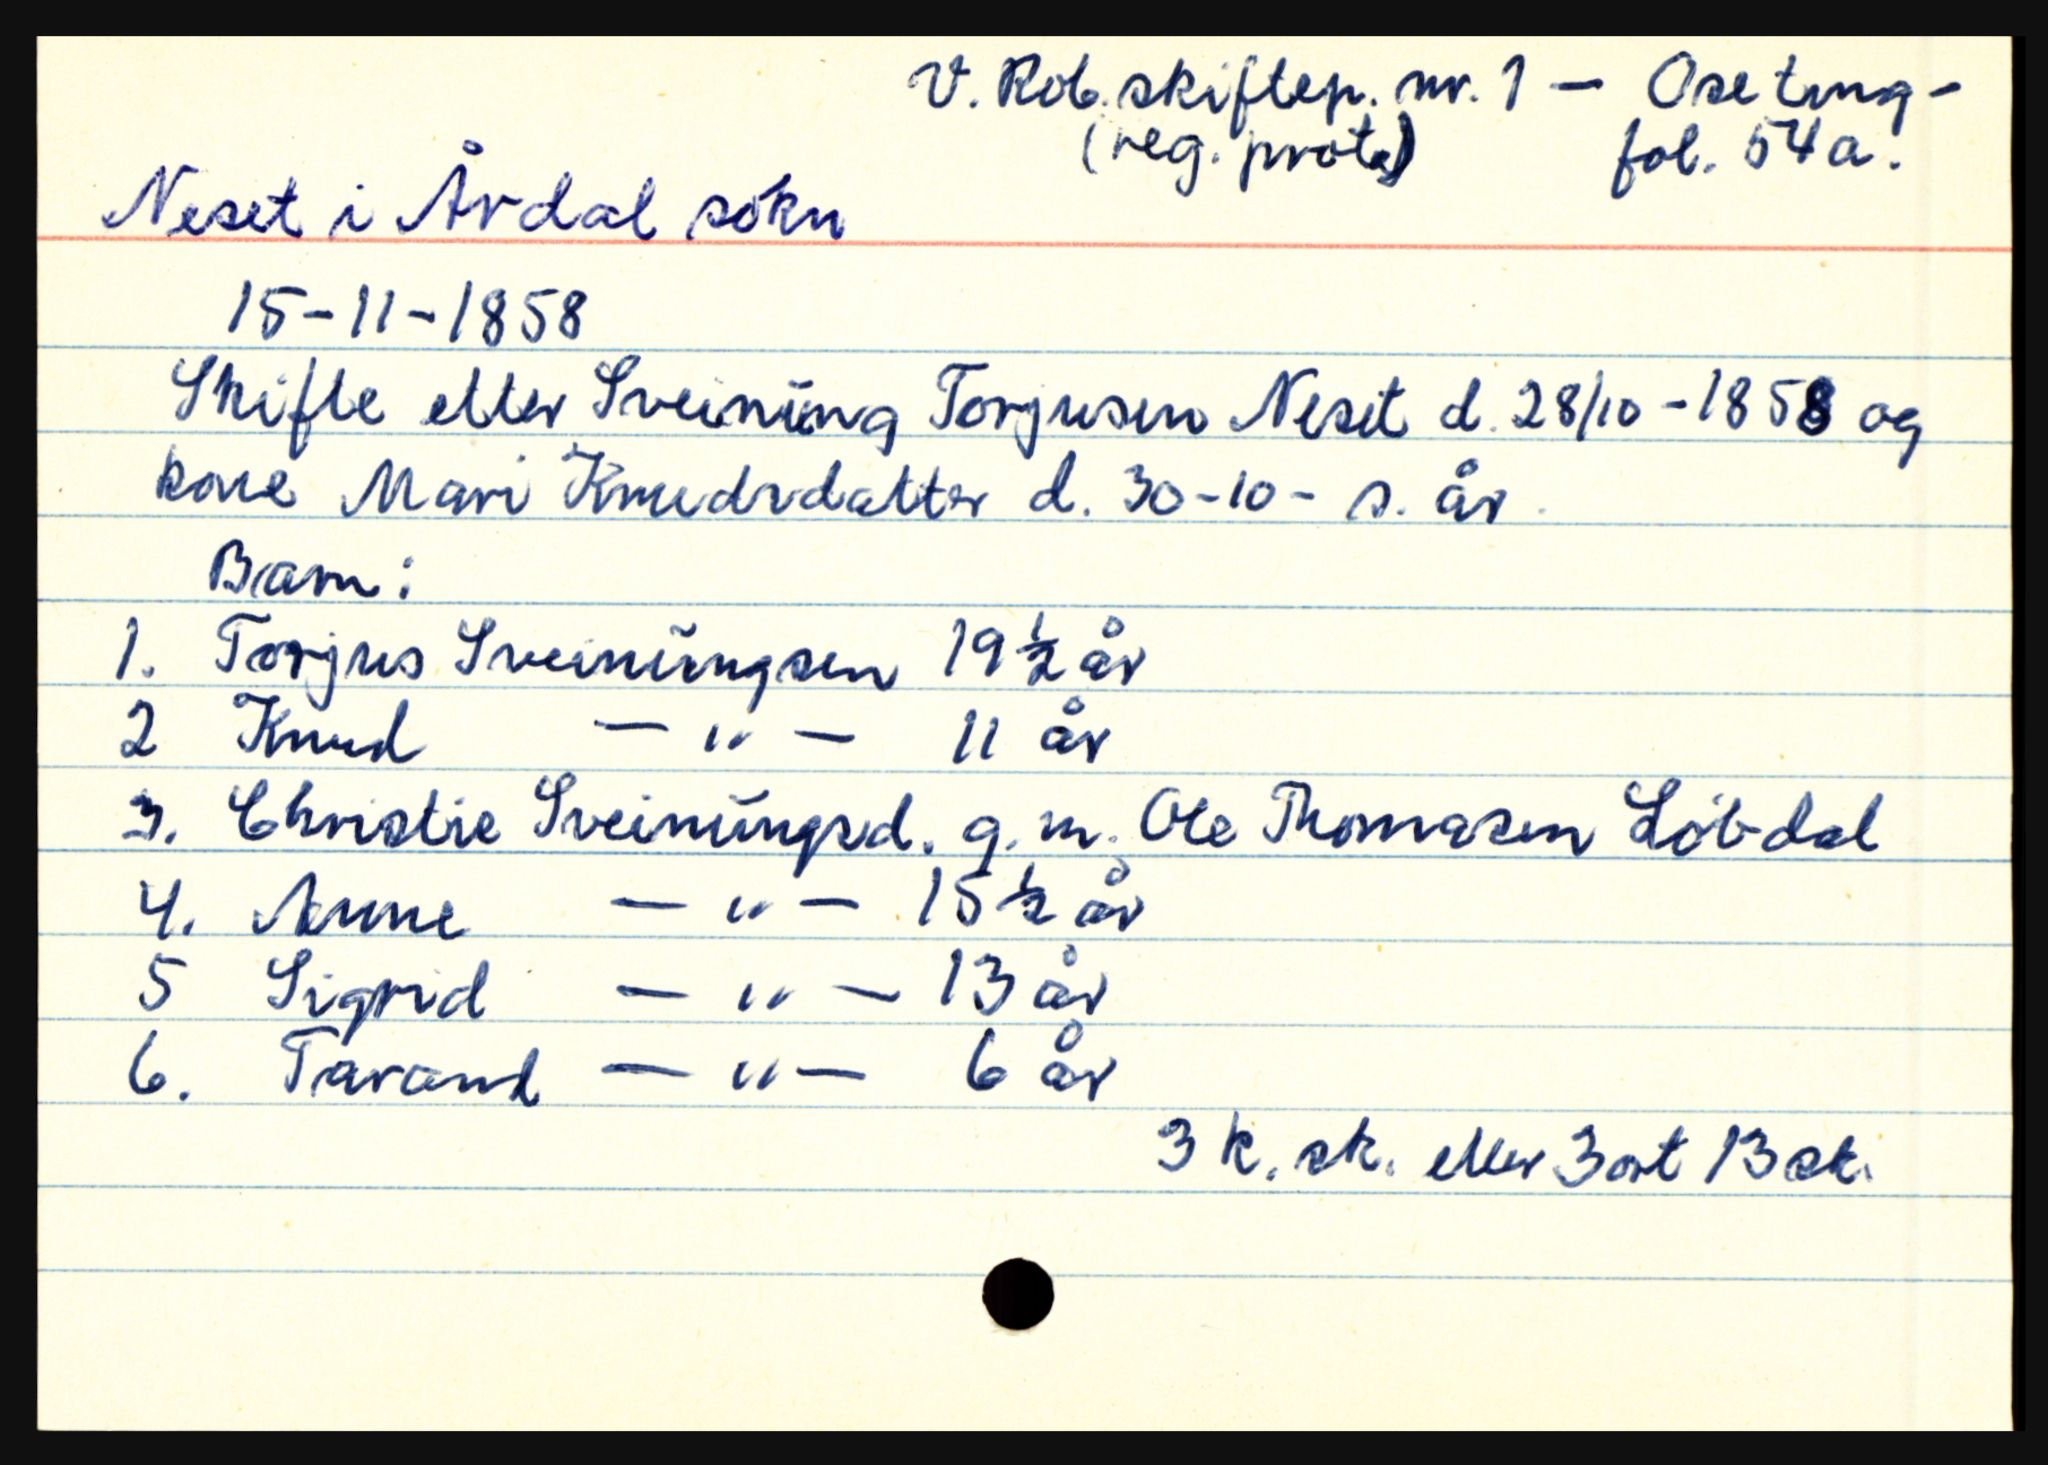 V. Rob. skiftep. nr. 1 — Ose tung-
(reg. prot.) fol. 54a.
Neset i Årdal sökn
15-11-1858
Skifte etter Sveinung Torjusen Neset d. 28/10-1858 og
kone Mari Knudsdatter d. 30-10- s. år.
Barn:
1. Torjus Sveinungsen 19 1/2 år
2 Knud — " — 11 år
3. Christie Sveinungsd. g. m. Ole Thomasen Löbdal
4. Anne — " — 15 1/2 år
5 Sigrid — " — 13 år
6. Tarand — " — 6 år
3 k. sk. eller 3 ort 13 sk.